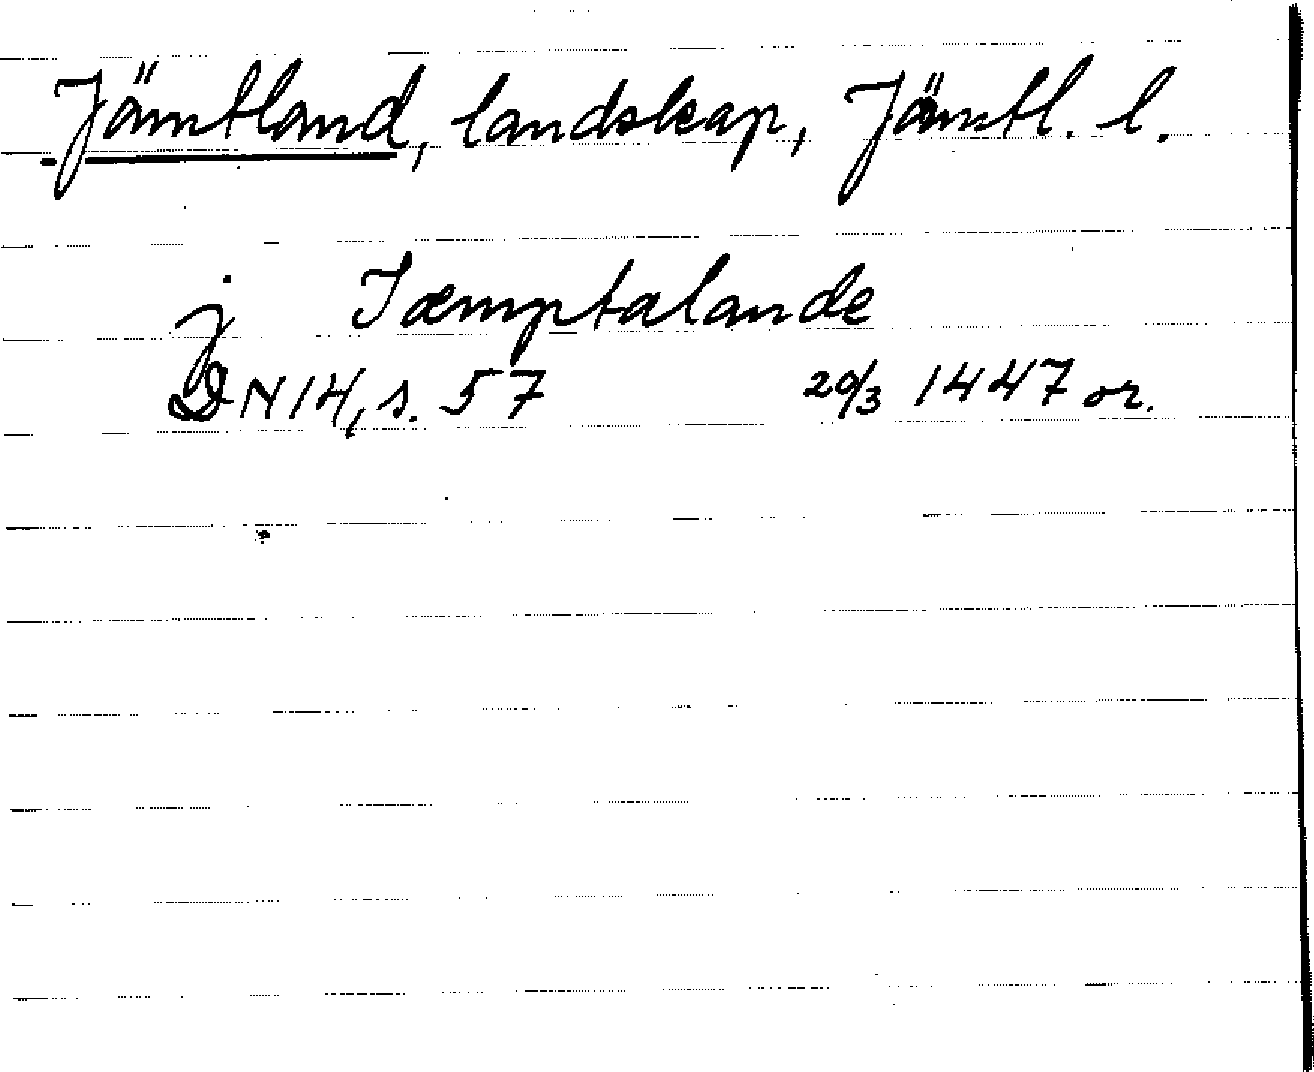 Jämtland, landskap, Jämtl. l.
j Jæmptalande
DN 14, s. 57 20/3 1447 or.